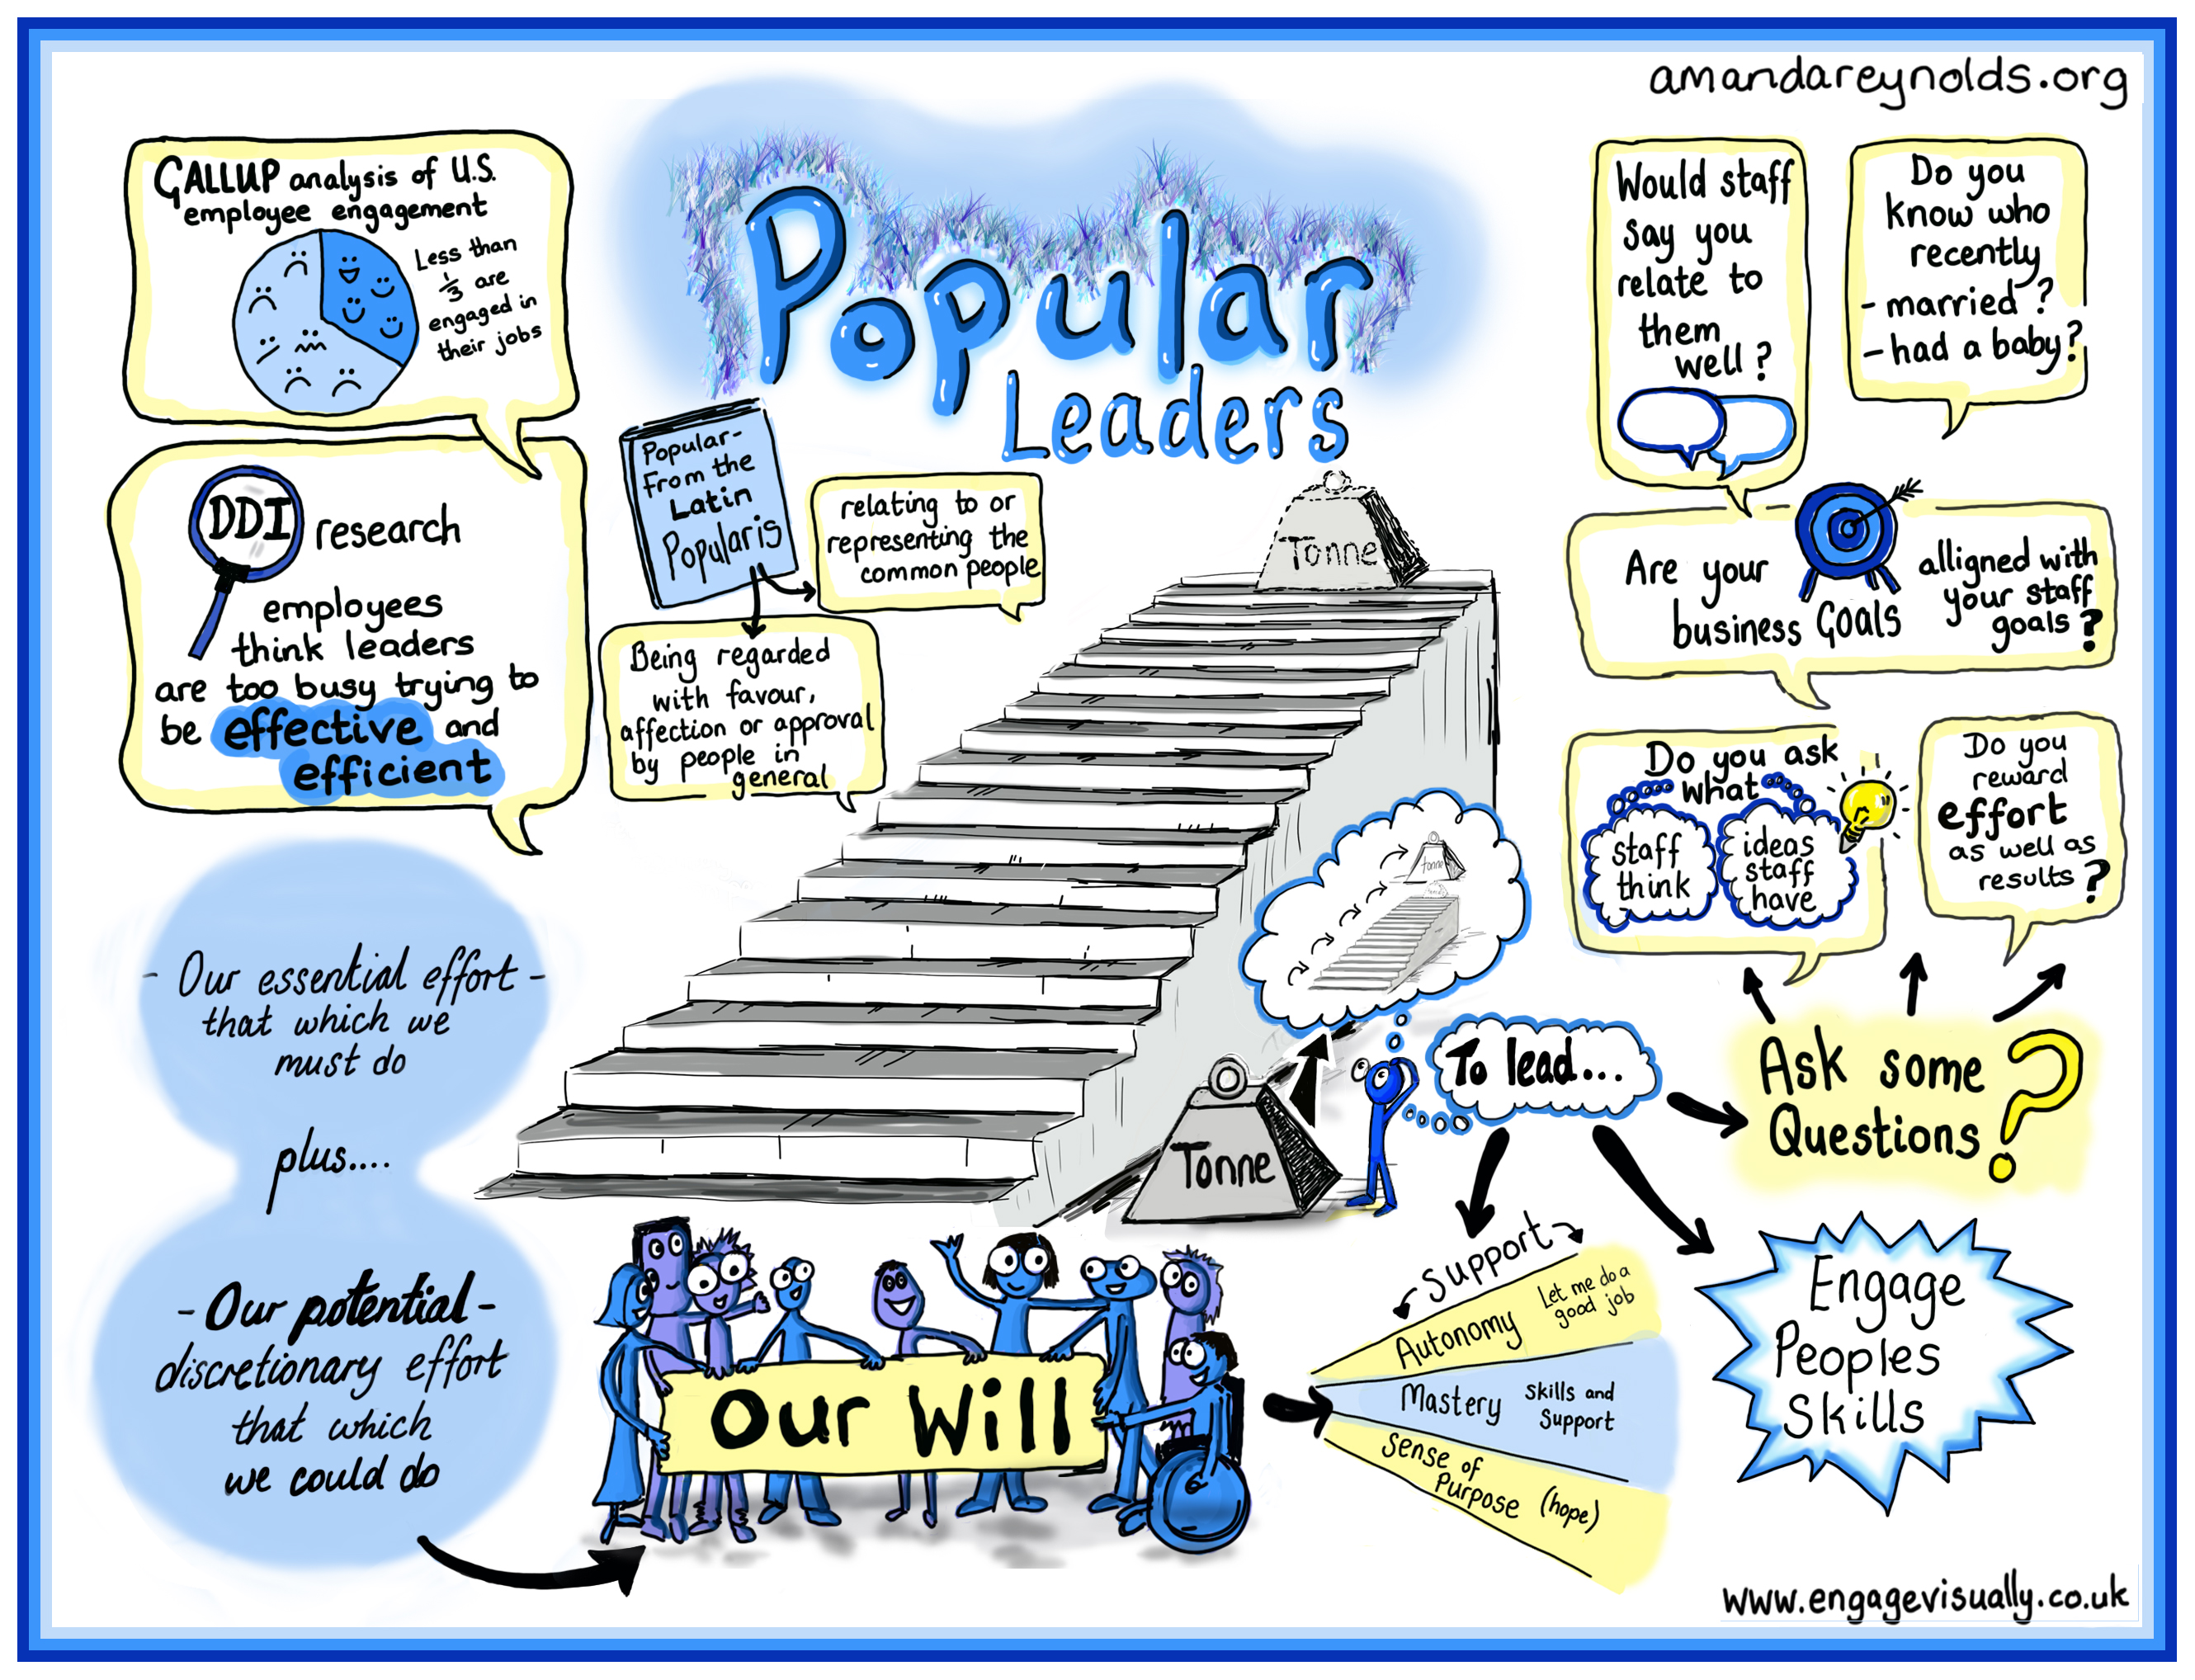 amandareynolds.org
GALLUP analysis of U.S.
employee engagement
Less than
1/3 are
engaged in
their jobs
DDI research
employees
think leaders
are too busy trying to
be effective and
efficient
- Our essential effort -
that which we
must do
plus....
- Our potential -
discretionary effort
that which
we could do
Popular
Leaders
Popular-
From the
Latin
Popularis
relating to or
representing the
common people
Being regarded
with favour,
affection or approval
by people in
general
Tonne
Tonne
Tonne
To lead...
Our Will
Support
Autonomy Let me do a
good job
Mastery Skills and
Support
Sense of
Purpose (hope)
Would staff
say you
relate to
them
well?
Do you
know who
recently
- married?
- had a baby?
Are your
business GOALS
alligned with
your staff
goals?
Do you ask
what
staff
think
ideas
staff
have
Do you
reward
effort
as well as
results?
Ask some
Questions?
Engage
Peoples
Skills
www.engagevisually.co.uk